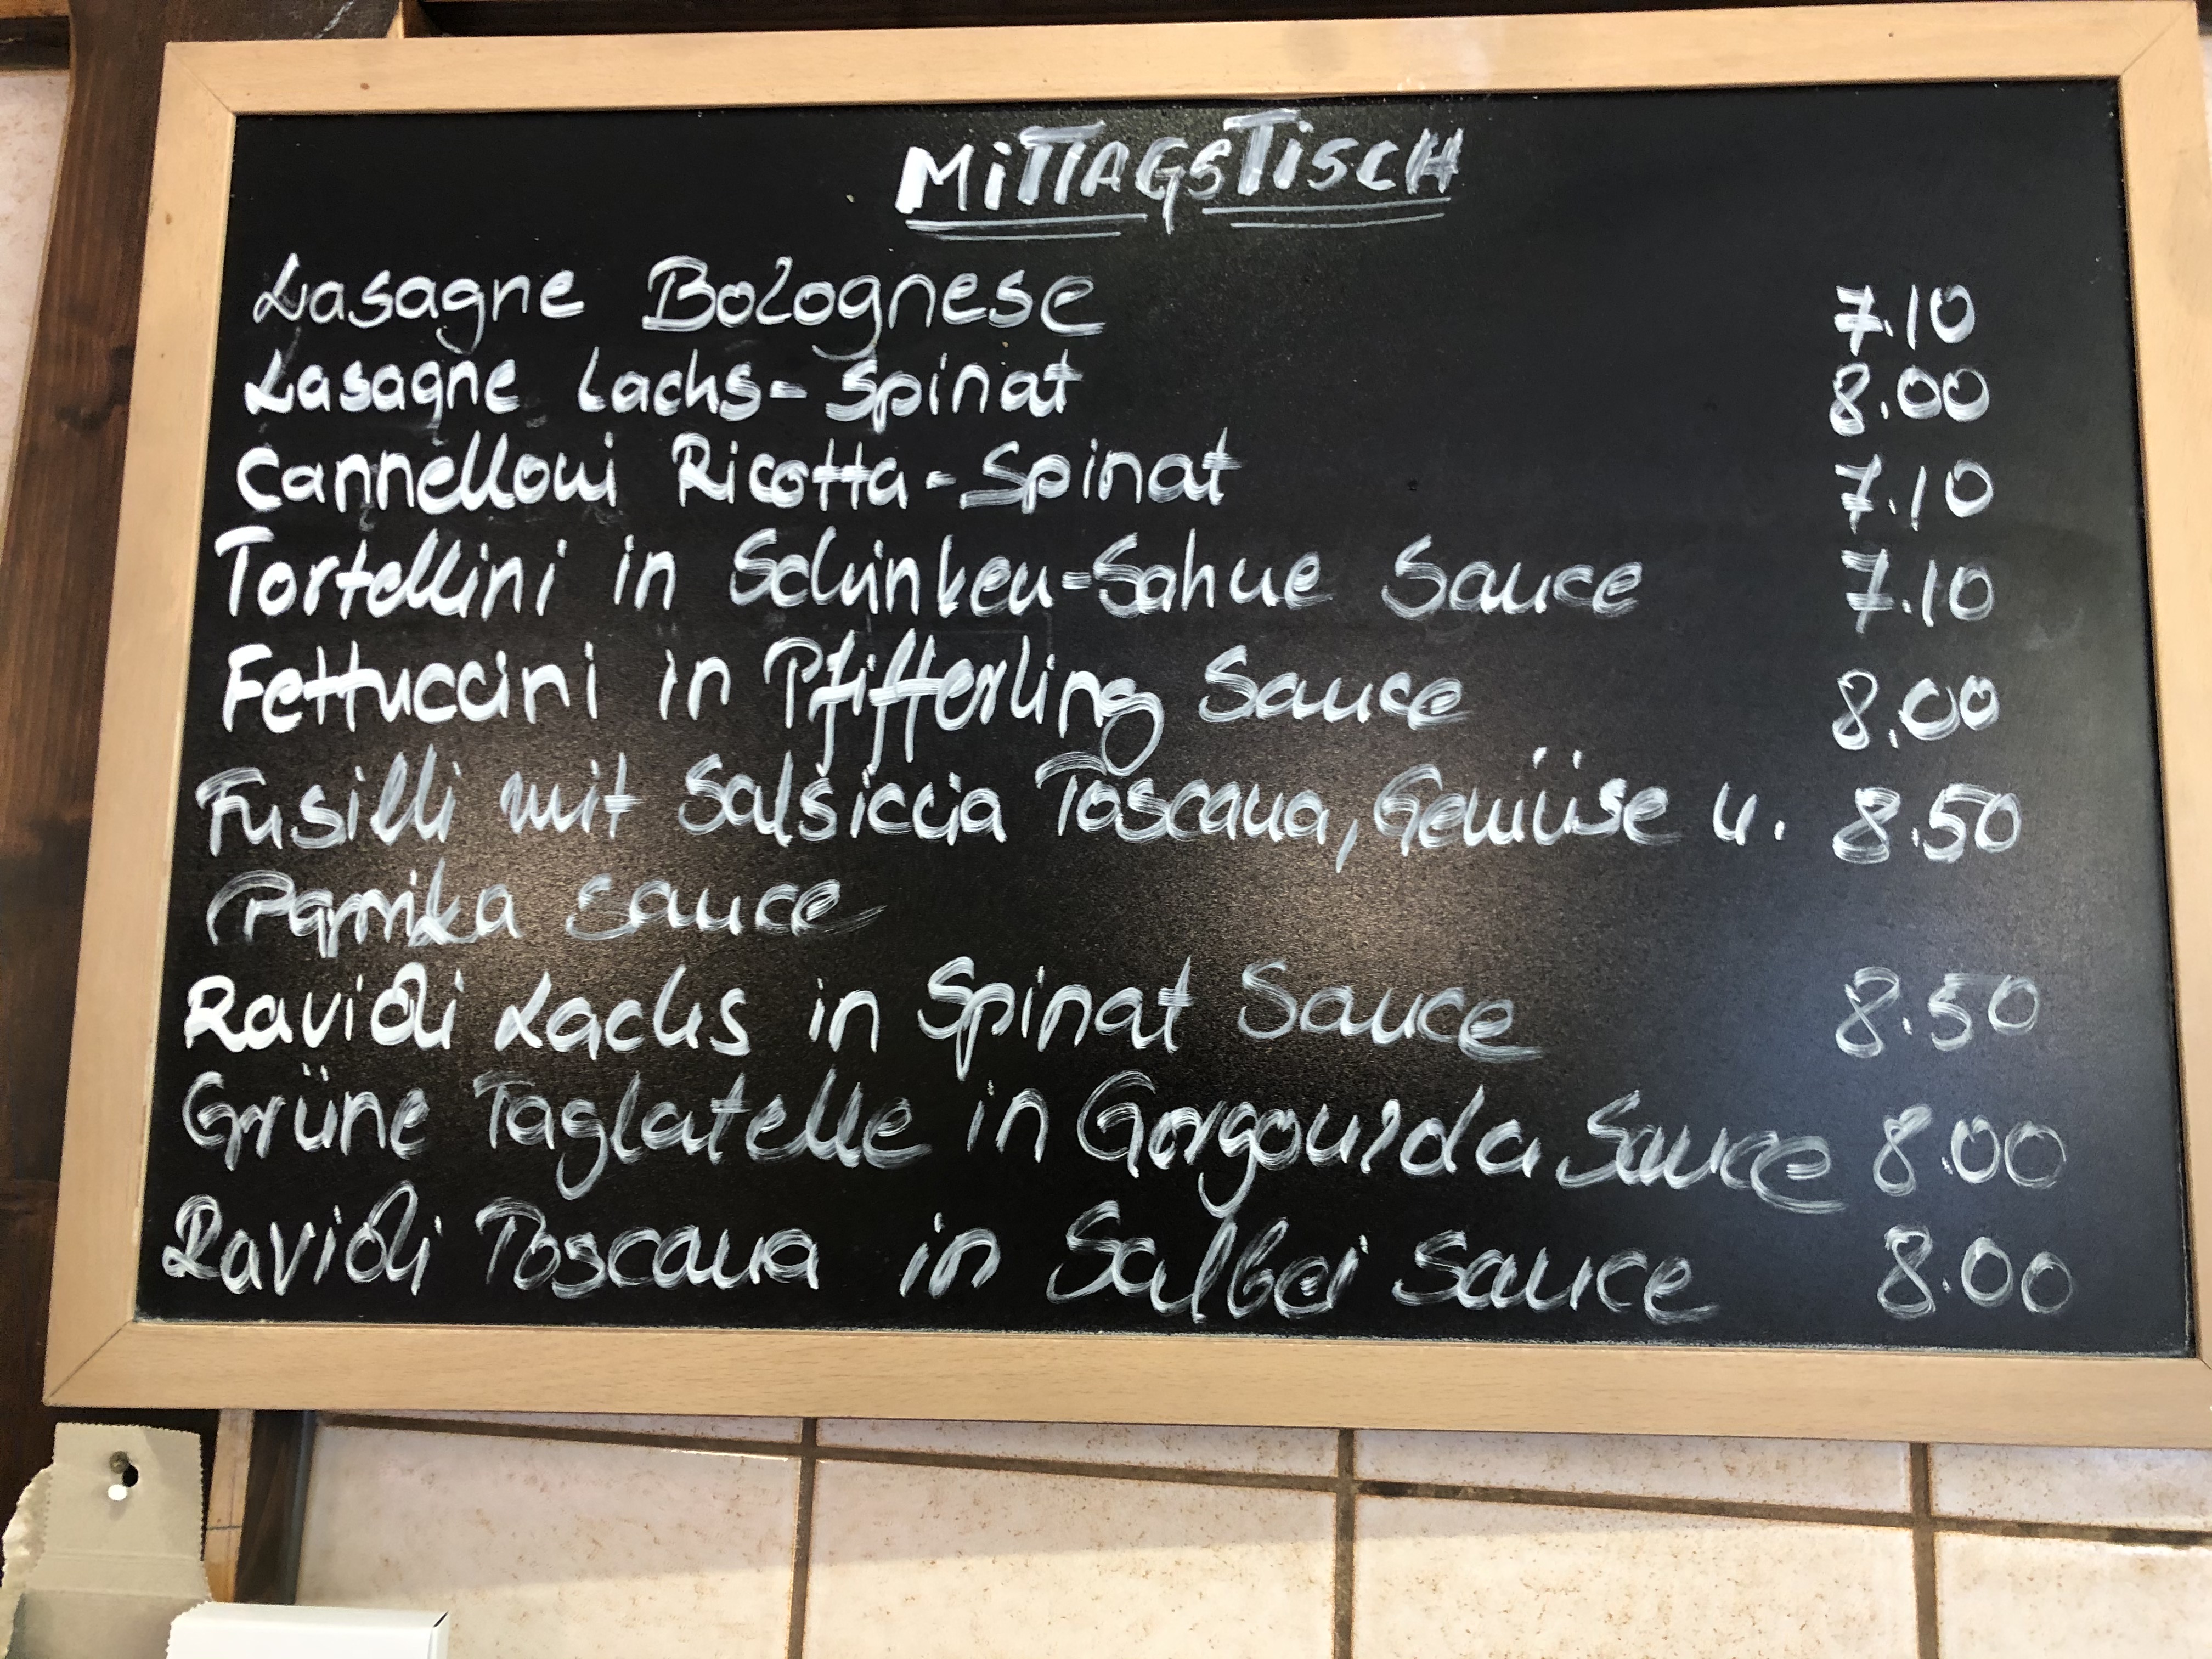 MiTTAGSTiSCH
Lasagne Bolognese 7.10
Lasagne Lachs-Spinat 8.00
Cannelloni Ricotta-Spinat 7.10
Tortellini in Schinken-Sahne Sauce 7.10
Fettuccini in Pfifferling Sauce 8.00
Fusilli mit Salsiccia Toscana, Gemüse u. 8.50
Paprika Sauce
Ravioli Lachs in Spinat Sauce 8.50
Grüne Taglatelle in Gorgonzola Sauce 8.00
Ravioli Toscana in Salbei Sauce 8.00